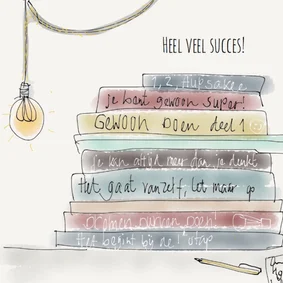 HEEL VEEL SUCCES!
1, 2, Hupsakee
Je bent gewoon super!
GEWOON DOEN deel 1
Je kan altijd meer dan je denkt
Het gaat vanzelf, let maar op
DROMEN DURVEN DOEN!
Het begint bij de 1e stap